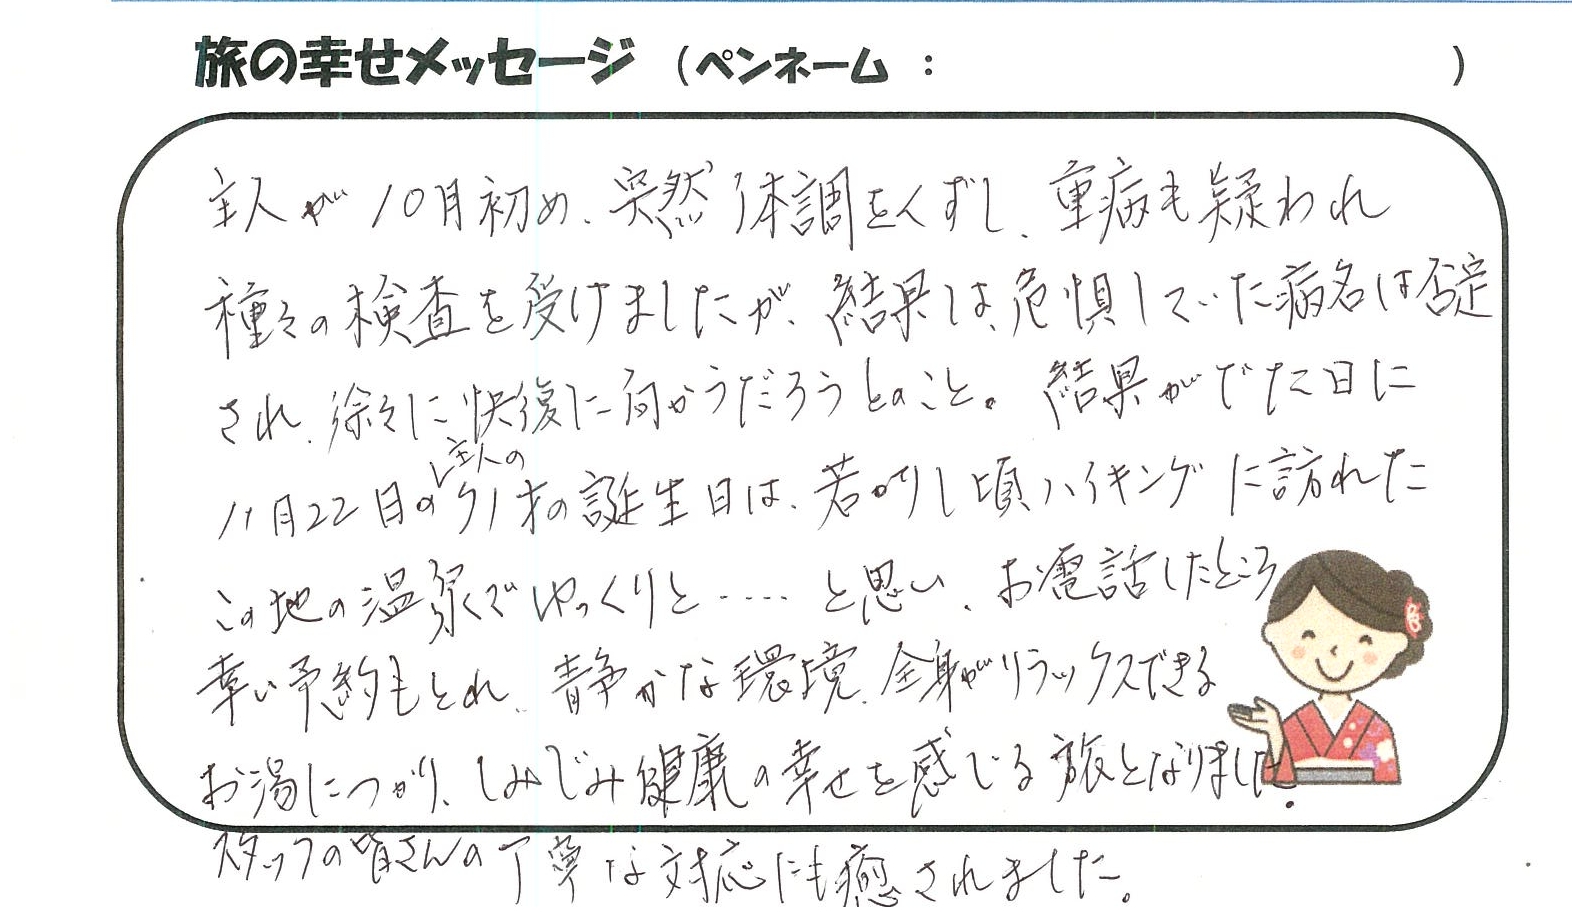 旅の幸せメッセージ （ペンネーム ： ）
主人が10月初め、突然体調をくずし、重病も疑われ
種々の検査を受けましたが、結果は、危惧していた病名は否定
され、徐々に快復に向かうだろうとのこと。結果がでた日に
主人の
11月22日の71才の誕生日は、若かりし頃ハイキングに訪れた
この地の温泉でゆっくりと‥‥と思い、お電話したところ
幸い予約もとれ、静かな環境、全身がリラックスできる
お湯につかり、しみじみ健康の幸せを感じる旅となりました。
スタッフの皆さんの丁寧な対応にも癒されました。